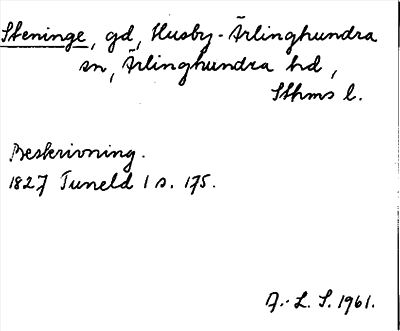 Steninge, gd, Husby-Ärlinghundra
sn, Ärlinghundra hd,
Sthms l.
Beskrivning.
1827 Tuneld 1 s. 175.
A.-L. S. 1961.